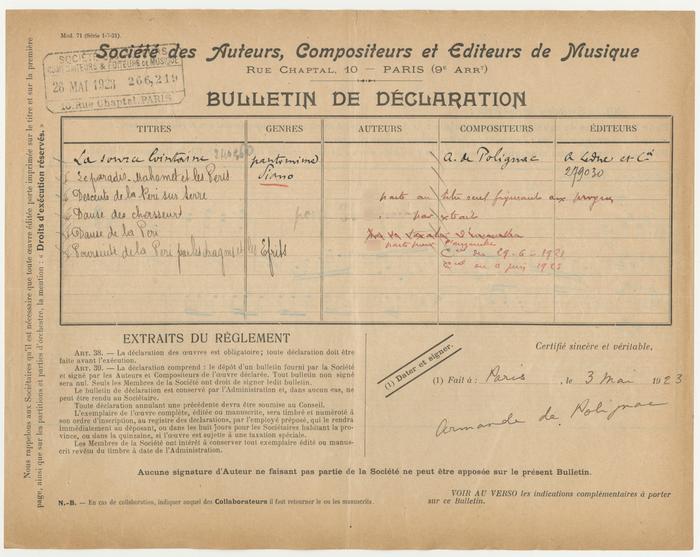 Mod. 71 (Série 1-7-21).
Société des Auteurs, Compositeurs et Editeurs de Musique
Rue Chaptal, 10 — PARIS (9e Arrt)
COMPOSITEURS & ÉDITEURS DE MUSIQUE
26 MAI 1923 266,219
10, Rue Chaptal, PARIS
BULLETIN DE DÉCLARATION
TITRES GENRES AUTEURS COMPOSITEURS ÉDITEURS
La source lointaine pantomime A. de Polignac A Ledue et Cie
Le paradis. Mahomet et les Péris Piano 279030
Descente de la Péri sur terre parts au titre seul figurant aux
Danse des chasseurs par extrait
Danse de la Péri
Poursuite de la Péri par les dragons et les Efrits
du 29-6-1921
Nous rappelons aux Sociétaires qu'il est nécessaire que toute œuvre éditée porte imprimée sur le titre et sur la première
page, ainsi que sur les partitions et parties d'orchestre, la mention : « Droits d'exécution réservés. »
EXTRAITS DU RÈGLEMENT
Art. 38. — La déclaration des œuvres est obligatoire; toute déclaration doit être
faite avant l'exécution.
Art. 39. — La déclaration comprend : le dépôt d'un bulletin fourni par la Société
et signé par les Auteurs et Compositeurs de l'œuvre déclarée. Tout bulletin non signé
sera nul. Seuls les Membres de la Société ont droit de signer ledit bulletin.
Le bulletin de déclaration est conservé par l'Administration et, dans aucun cas, ne
peut être rendu au Sociétaire.
Toute déclaration annulant une précédente devra être soumise au Conseil.
L'exemplaire de l'œuvre complète, éditée ou manuscrite, sera timbré et numéroté à
son ordre d'inscription, au registre des déclarations, par l'employé préposé, qui le rendra
immédiatement au déposant, ou dans les huit jours pour les Sociétaires habitant la pro-
vince, ou dans la quinzaine, si l'œuvre est sujette à une taxation spéciale.
Les Membres de la Société ont intérêt à conserver tout exemplaire édité ou manus-
crit revêtu du timbre à date de l'Administration.
(1) Dater et signer.
Certifié sincère et véritable,
(1) Fait à : Paris, le 3 Mai 1923
Armande de Polignac
Aucune signature d'Auteur ne faisant pas partie de la Société ne peut être apposée sur le présent Bulletin.
N.-B. — En cas de collaboration, indiquer auquel des Collaborateurs il faut retourner le ou les manuscrits.
VOIR AU VERSO les indications complémentaires à porter
sur ce Bulletin.